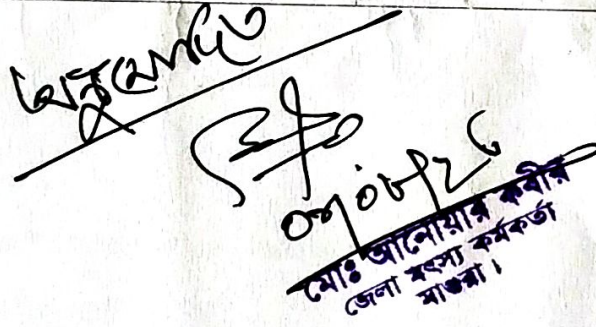 অনুমোদিত
মোঃ আনোয়ার কবীর
জেলা মৎস্য কর্মকর্তা
মাগুরা।